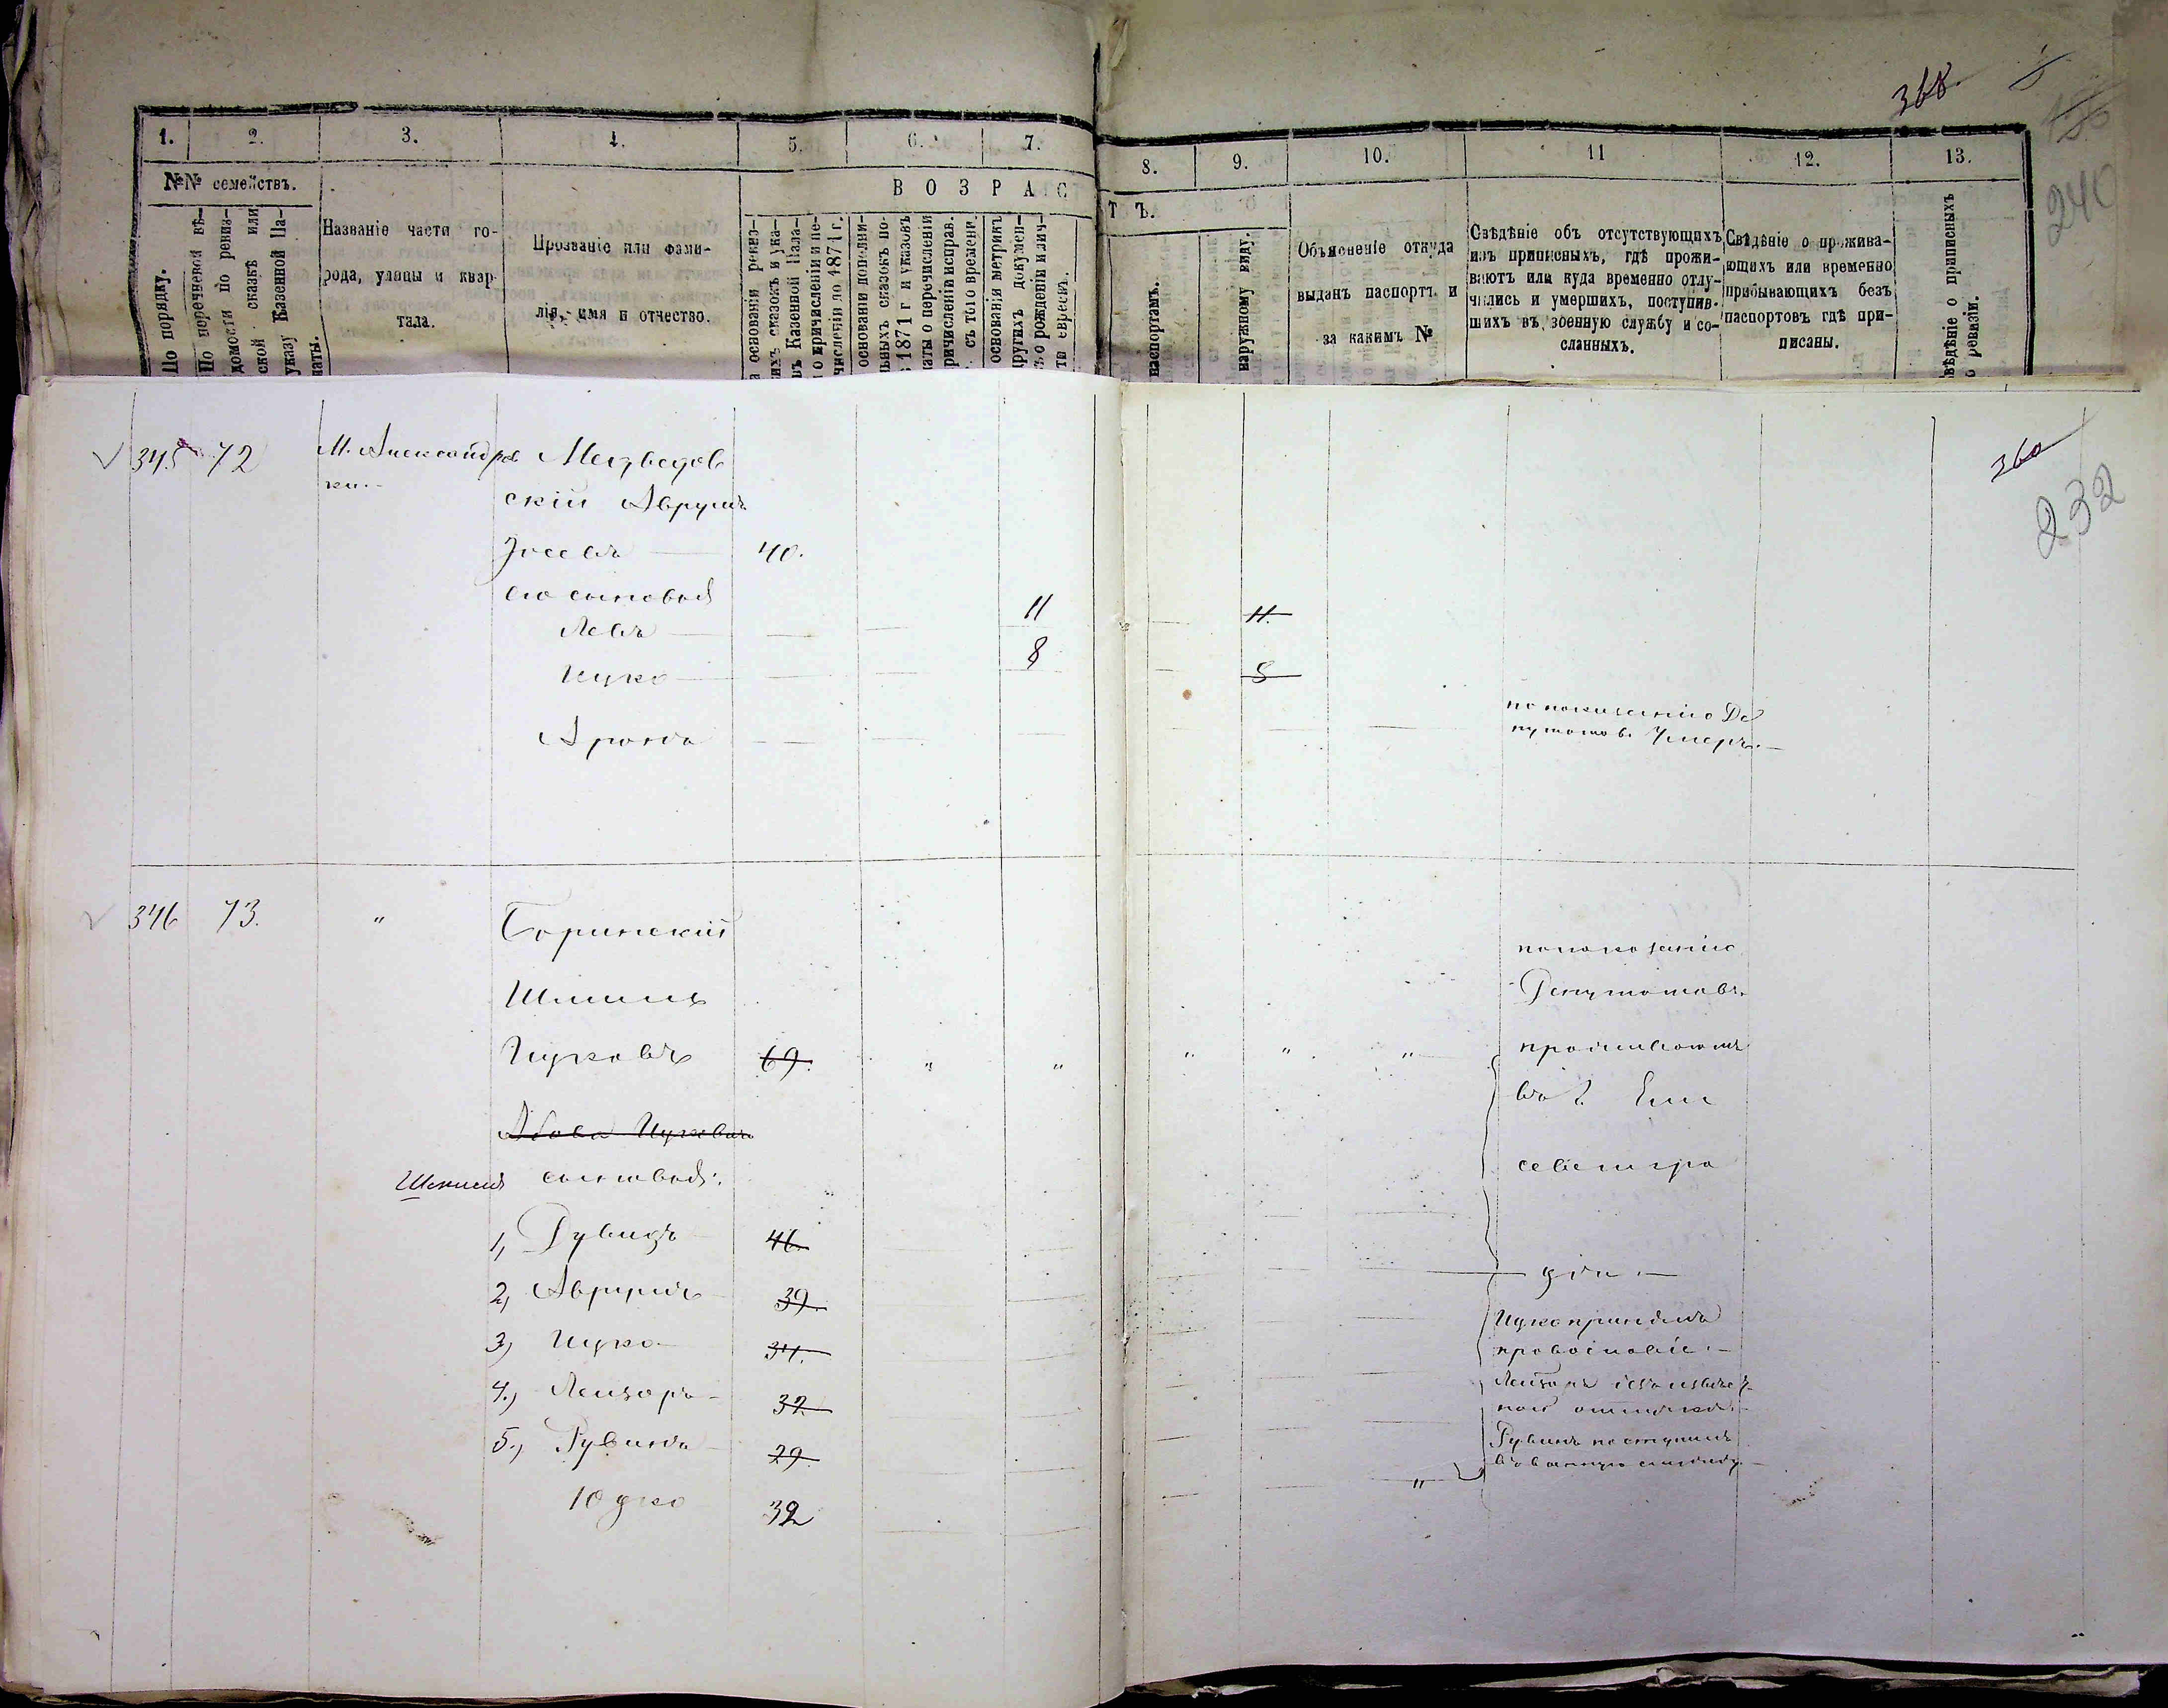 368
240
1. 2. 3. 4. 5. 6. 7. 8. 9. 10. 11 12. 13.
№№ семействъ.
ВОЗРАСТЪ.
По порядку.
По перечневой вѣдомости по ревизской сказкѣ или указу Казенной Палаты.
Названіе части города, улицы и квартала.
Прозваніе или фамилія, имя и отчество.
а основаніи ревиз-
ихъ сказокъ и ука-
въ Казенной Пала-
о причисленіи и пе-
численіи до 1871 г.
основаніи дополни-
льныхъ сказокъ по-
1871 г и указовъ
латы о перечисленіи
ричисленіи исправ.
съ того времени.
основаніи метрикъ
другихъ докумен-
ъ о рожденіи и лич-
ти евреевъ.
паспортамъ.
наружному виду.
Объясненіе откуда
выданъ паспортъ и
за какимъ №
Свѣдѣніе объ отсутствующихъ
изъ приписныхъ, гдѣ прожи-
ваютъ или куда временно отлу-
чились и умершихъ, поступив-
шихъ въ военную службу и со-
сланныхъ.
Свѣдѣніе о прожива-
ющихъ или временно
прибывающихъ безъ
паспортовъ гдѣ при-
писаны.
вѣдѣніе о приписныхъ
о ревизіи.
360
232
345 72 М. Александров Медведов
ка.
скій Аврумъ
Іосевъ 40.
его сыновья
Левъ 11 11.
Ицко 8 8
Аронъ
по показанію Де
путатовъ Умеръ.
346 73. " Горинскій
Шмиль
Ицковъ 69. " " " " "
Ицковъ
Шмиля сыновья:
1, Дувидъ 46.
2, Аврумъ 39.
3, Ицко 34.
4, Лейзоръ 32
5, Рувинъ 29.
Юдко 32
по показанію
Депутатовъ
проживаютъ
въ г. Ели
саветгра
дѣ.
Ицко принялъ
православіе.
Лейзоръ въ безызвѣст
ной отлучкѣ.
Рувинъ поступилъ
въ военную службу.
"